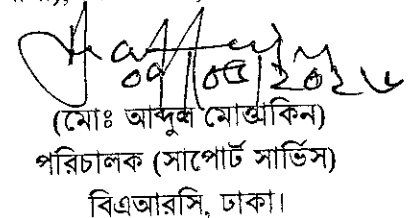 ০৭/০৫/২০২৬
(মোঃ আব্দুল মোত্তাকিন)
পরিচালক (সাপোর্ট সার্ভিস)
বিএআরসি, ঢাকা।